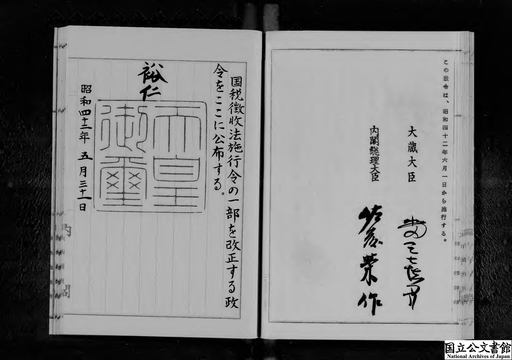 この政令は、昭和四十二年六月一日から施行する。
大蔵大臣
内閣総理大臣
佐藤栄作
国税徴収法施行令の一部を改正する政
令をここに公布する。
裕仁
天皇
御璽
昭和四十二年五月三十一日
内閣
国立公文書館
National Archives of Japan